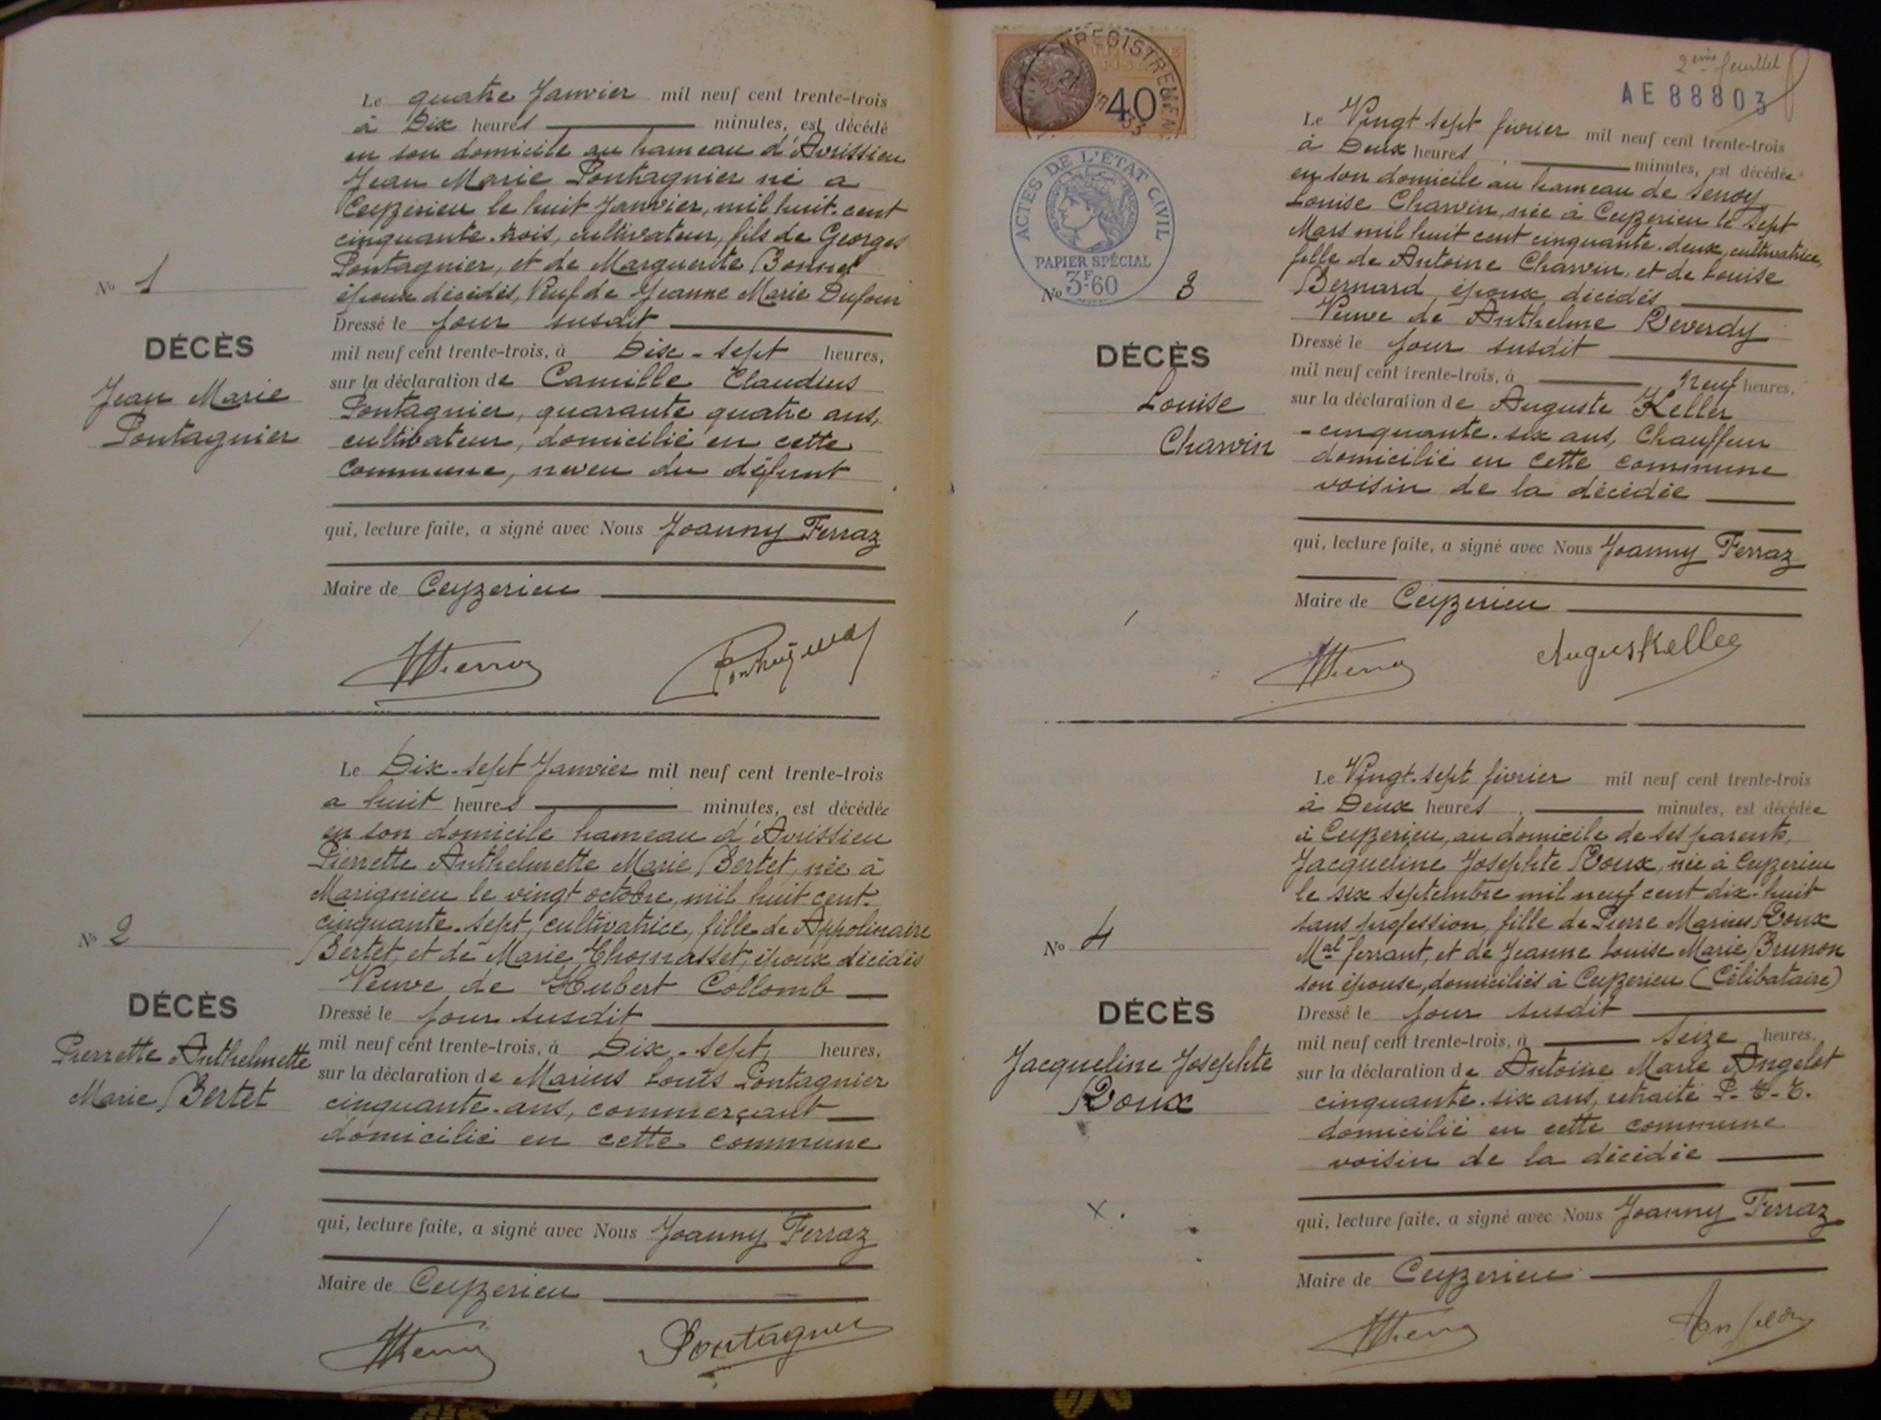 Le quatre Janvier mil neuf cent trente-trois
à Dix heures minutes, est décédé
en son domicile au hameau d'Avrissieu
Jean Marie Pontagnier né a
Ceyzerieu le huit Janvier, mil huit-cent
cinquante-trois, cultivateur, fils de Georges
Pontagnier, et de Marguerite Bonnet
époux décédés, Veuf de Jeanne Marie Dufour
Dressé le jour susdit
mil neuf cent trente-trois, à Dix-sept heures,
sur la déclaration de Camille Claudius
Pontagnier, quarante quatre ans,
cultivateur, domicilié en cette
commune, neveu du défunt
qui, lecture faite, a signé avec Nous Joanny Ferraz
Maire de Ceyzerieu
No 1
DÉCÈS
Jean Marie
Pontagnier
Le Dix-sept Janvier mil neuf cent trente-trois
a huit heures minutes, est décédée
en son domicile hameau d'Avrissieu
Pierrette Anthelmette Marie Bertet, née à
Marignieu le vingt octobre, mil huit cent-
cinquante-sept, cultivatrice, fille de Appolinaire
Bertet, et de Marie Thomasset, époux décédés
Veuve de Hubert Collomb
Dressé le jour susdit
mil neuf cent trente-trois, à Dix-sept heures,
sur la déclaration de Marius Louis Pontagnier
cinquante-ans, commerçant
domicilié en cette commune
qui, lecture faite, a signé avec Nous Joanny Ferraz
Maire de Ceyzerieu
Pontagnier
No 2
DÉCÈS
Pierrette Anthelmette
Marie Bertet
2eme feuillet
AE 88803
ENREGISTREMENT
40
ACTES DE L'ÉTAT CIVIL
PAPIER SPÉCIAL
3F.60
Le Vingt sept février mil neuf cent trente-trois
à Deux heures minutes, est décédée
en son domicile au hameau de Senoy
Louise Charvin, née à Ceyzerieu le sept
Mars mil huit cent cinquante-deux, cultivatrice,
fille de Antoine Charvin, et de Louise
Bernard, époux décédés
Veuve de Anthelme Reverdy
Dressé le jour susdit
mil neuf cent trente-trois, à neuf heures,
sur la déclaration de Auguste Keller
cinquante-six ans, Chauffeur
domicilié en cette commune
voisin de la décédée
qui, lecture faite, a signé avec Nous Joanny Ferraz
Maire de Ceyzerieu
No 3
DÉCÈS
Louise
Charvin
Le Vingt-sept février mil neuf cent trente-trois
à Deux heures minutes, est décédée
à Ceyzerieu, au domicile de ses parents,
Jacqueline Josephte Roux, née à Ceyzerieu
le six septembre mil neuf cent dix-huit
sans profession, fille de Pierre Marius Roux
Mal ferrant, et de Jeanne Louise Marie Brunon
son épouse, domiciliés à Ceyzerieu (Célibataire)
Dressé le jour susdit
mil neuf cent trente-trois, à seize heures,
sur la déclaration de Antoine Marie Angelot
cinquante-six ans, retraité P.T.T.
domicilié en cette commune
voisin de la décédée
qui, lecture faite, a signé avec Nous Joanny Ferraz
Maire de Ceyzerieu
No 4
DÉCÈS
Jacqueline Josephte
Roux